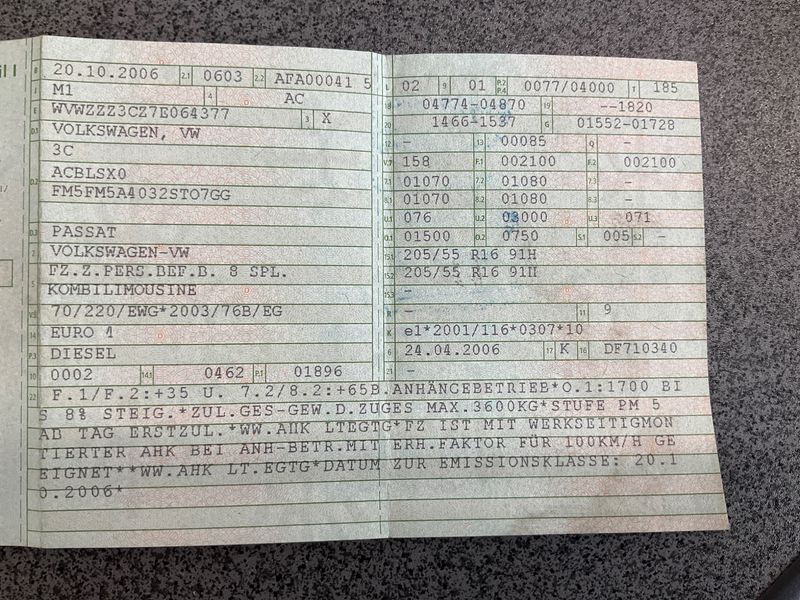 B 20.10.2006 2.1 0603 2.2 AFA00041 5
J M1 4 AC
E WVWZZZ3CZ7E064377 3 X
D.1 VOLKSWAGEN, VW
3C
D.2 ACBLSX0
FM5FM5A4032STO7GG
D.3 PASSAT
2 VOLKSWAGEN-VW
5 FZ.Z.PERS.BEF.B. 8 SPL.
KOMBILIMOUSINE
V.9 70/220/EWG*2003/76B/EG
14 EURO 4
P.3 DIESEL
10 0002 14.1 0462 P.1 01896
L 02 9 01 P.2 P.4 0077/04000 T 185
18 04774-04870 19 --1820
20 1466-1537 G 01552-01728
12 - 13 00085 Q -
V.7 158 F.1 002100 F.2 002100
7.1 01070 7.2 01080 7.3 -
8.1 01070 8.2 01080 8.3 -
U.1 076 U.2 03000 U.3 071
O.1 01500 O.2 0750 S.1 005 S.2 -
15.1 205/55 R16 91H
15.2 205/55 R16 91H
15.3 -
R - 11 9
K e1*2001/116*0307*10
6 24.04.2006 17 K 16 DF710340
21 -
22 F.1/F.2:+35 U. 7.2/8.2:+65B.ANHÄNGEBETRIEB*O.1:1700 BI
S 8% STEIG.*ZUL.GES-GEW.D.ZUGES MAX.3600KG*STUFE PM 5
AB TAG ERSTZUL.*WW.AHK LTEGTG*FZ IST MIT WERKSEITIGMON
TIERTER AHK BEI ANH-BETR.MIT ERH.FAKTOR FÜR 100KM/H GE
EIGNET**WW.AHK LT.EGTG*DATUM ZUR EMISSIONSKLASSE: 20.1
0.2006*